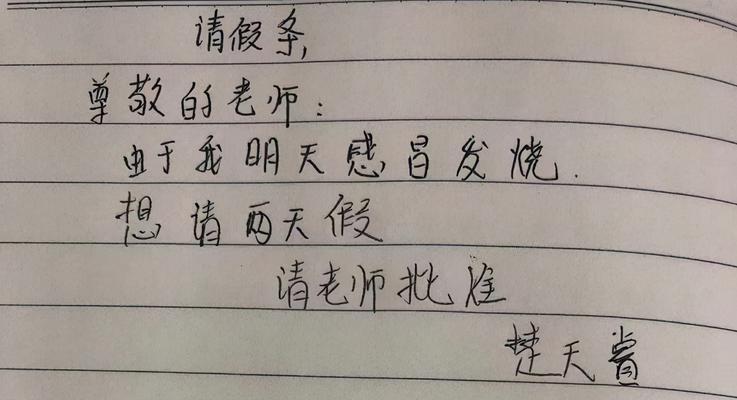 请假条
尊敬的老师：
由于我明天感冒发烧.
想请两天假
请老师批准
楚天